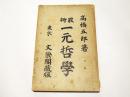 高橋五郎著
最新
一元哲學
東京 文榮閣藏版